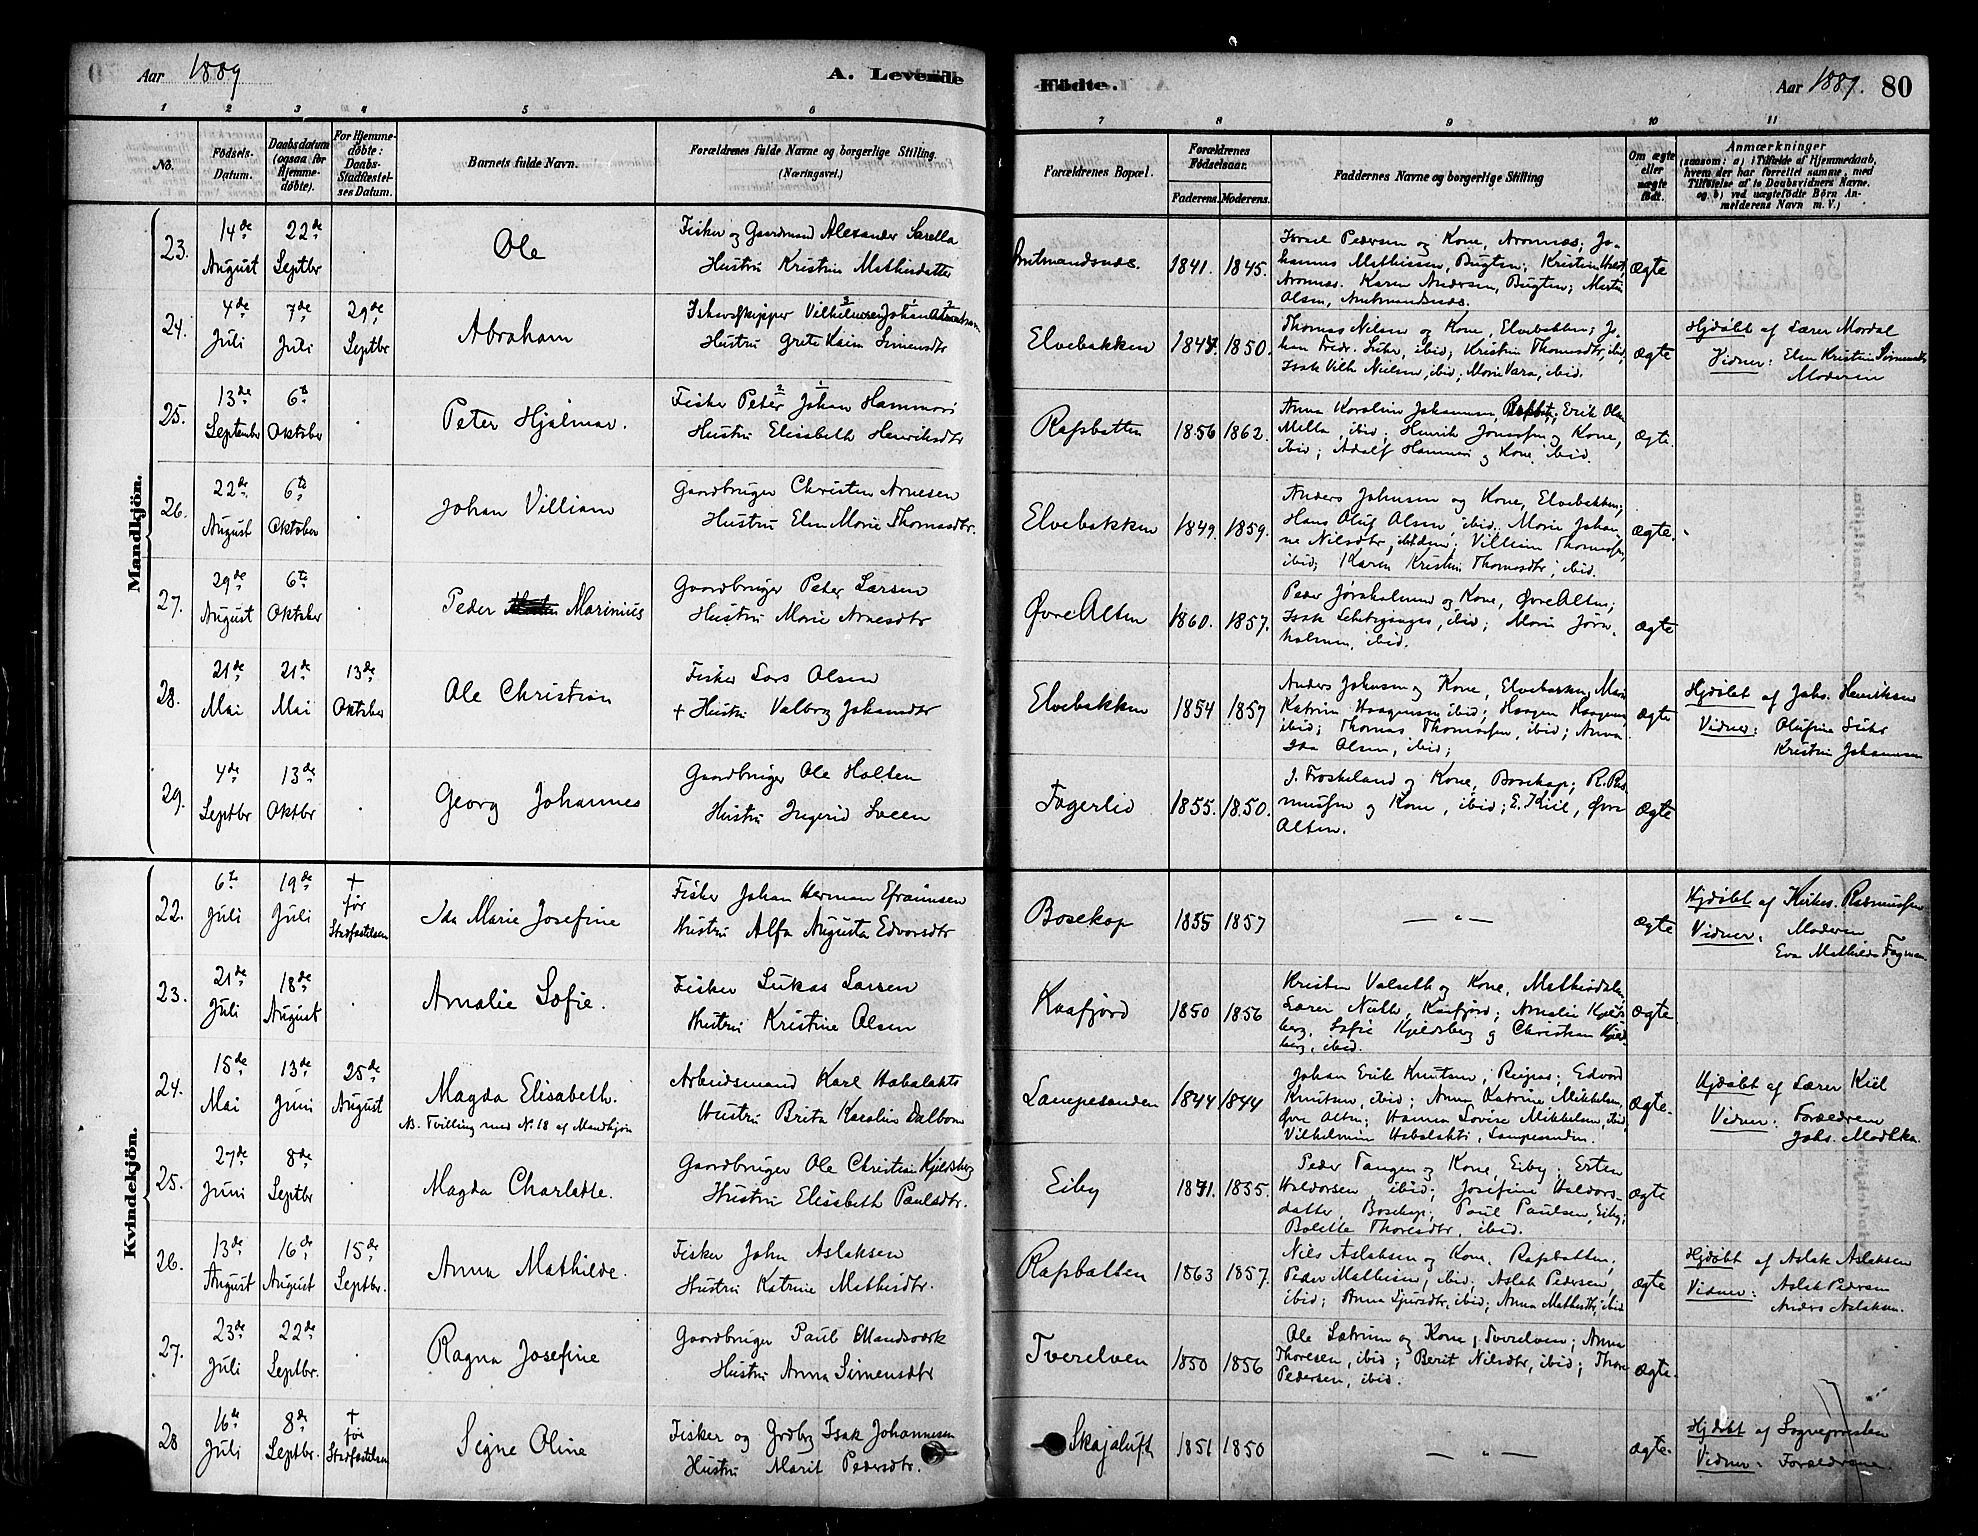 Aar 1889
A. Levende
Fødte.
Aar 1889.
80
1 2 3 4 5 6 7 8 9 10 11
No.
Fødsels-
Datum.
Daabsdatum
(ogsaa for
Hjemme-
døbte).
For Hjemme-
døbte:
Daabs-
Stadfæstel-
ses Datum.
Barnets fulde Navn.
Forældrenes fulde Navne og borgerlige Stilling.
(Næringsvei.)
Forældrenes Bopæl.
Forældrenes
Fødselsaar.
Faderens.
Moderens.
Faddernes Navne og borgerlige Stilling
Om ægte
eller
uægte
født.
Anmærkninger
(saasom: a) i Tilfælde af Hjemmedaab,
hvem der har forrettet samme, med
Tilføielse af to Daabsvidners Navne,
og b) ved uægtefødte Børn An-
melderens Navn m. V.)
Mandkjön.
23.
14de
August
22de
Septbr
Ole
Fisker og Gaardmand Alexander Sarella
Hustru Kristine Mathisdatter
Amtmandsnæs.
1841.
1845.
Israel Pedersen og Kone, Aronnæs; Jo-
hannes Mathissen, Bugten; Kristine
Aronnæs. Karen Andersen, Bugten; Martin
Olsen, Amtmandsnæs.
ægte
24.
4de
Juli
7de
Juli
29de
Septbr
Abraham
Ishavsskipper Vilhelmsen Johan
Hustru Grete Simensdtr
Elvebakken
1847.
1850.
Thomas Nilsen og Kone, Elvebakken; Jo-
han Fredr. Suhr, ibid; Kristine Thomasdtr, ibid,
Isak Vilh Nielsen, ibid; Marie Vara, ibid.
ægte
Hjdøbt af Lærer Mordal
Vidner: Elen Kristine Simensdtr
Moderen
25.
13de
September
6te
Oktober
Peter Hjalmar.
Fisker Peter Johan Hammari
Hustru Elisabeth Henriksdtr
Rafsbotten
1856
1862.
Anna Karoline Johansen, Erik Olsen
Mella, ibid; Henrik Jonassen og Kone,
ibid; Adolf Hammari og Kone, ibid.
ægte.
26.
22de
August
6te
Oktober
Johan Villiam
Gaardbruger Christen Arnesen
Hustru Elen Marie Thomasdtr.
Elvebakken
1849.
1859.
Anders Johnsen og Kone, Elvebakken;
Hans Oluf Olsen, ibid. Marie Johan-
ne Nilsdtr, ibidem; Villiam Thomassen,
ibid; Karen Kristine Thomasdtr, ibid.
ægte.
27.
29de
August
6te
Oktober
Peder Marinius
Gaardbruger Peter Larsen
Hustru Marie Arnesdtr
Øvre Alten
1860.
1857.
Peder Jørnholmen og Kone, Øvre Alten;
Isak, ibid; Marie Jørn-
holmen, ibid.
ægte
28.
21de
Mai
21de
Mai
13de
Oktober
Ole Christian
Fisker Lars Olsen
+ Hustru Valborg Johansdtr
Elvebakken
1854
1857
Anders Johnsen og Kone, Elvebakken; Mari
Katrine Haagensen, ibid; Haagen Haagensen,
ibid; Thomas Thomassen, ibid; Anna
Olsen, ibid;
ægte
Hjdøbt af Johs. Henriksen
Vidner: Olufine Suhr
Kristine Johannsen
29.
4de
Septbr
13de
Oktbr
Georg Johannes
Gaardbruger Ole Holten
Hustru Ingerid Sveen
Fagerlid
1855.
1850.
J. Froskeland og Kone, Bosekop; R. Ras-
mussen og Kone, ibid; E. Kiil, Øvre
Alten.
ægte
Kvindekjön.
22.
6te
Juli
19de
Juli
+
før
Stadfæstelsen
Ida Marie Josefine
Fisker Johan Herman Efraimsen
Hustru Alfa Augusta Edvarsdtr
Bosekop
1855
1857
— " —
ægte
Hjdøbt af Kirkes. Rasmussen
Vidner: Moderen
Eva Mathilde Fagman.
23.
21de
Juli
18de
August
Amalie Sofie.
Fisker Lukas Larsen
Hustru Kristine Olsen
Kaafjord
1850
1856
Kristen Valseth og Kone, Mathisdalen,
Lærer, Kaafjord; Amalie Kjelds-
berg, Sofie Kjeldsberg og Christian Kjelds-
berg, ibid.
ægte.
24.
15de
Mai
13de
Juni
25de
August
Magda Elisabeth.
NB. Tvilling med No. 18 af Mandkjøn
Arbeidsmand Karl Habalakts
Hustru Brita Karoline Dalbom
Lampesanden
1844
1844
Johan Erik Knutsen, Reipas; Edvard
Knutsen, ibid; Anna Katrine Mikkelsen,
Øvre Alten; Hanna Lovise Mikkelsen, ibid,
Vilhelmine Habalakti, Lampesanden.
ægte.
Hjdøbt af Lærer Kiil
Vidner: Forældrene
25.
27de
Juni
8de
Septbr
Magda Charlotte.
Gaardbruger Ole Christian Kjeldsberg
Hustru Elisabeth Paulsdtr.
Eiby
1835.
Peder Tangen og Kone, Eiby; Esten
Haldorsen, ibid; Josefine Haldors-
datter, Bosekop; Paul Paulsen, Eiby;
Bolette Thoresdtr, ibid.
ægte
26.
13de
August
16de
August
15de
Septbr.
Anna Mathilde.
Fisker John Aslaksen
Hustru Katrine Mathisdtr.
Rafsbotten
1863
1857.
Nils Aslaksen og Kone, Rafsbotten;
Peder Mathisen, ibid; Aslak Pedersen,
ibid; Anna, ibid; Anna Mathisdtr, ibid
ægte
Hjdøbt af Aslak Aslaksen
Vidner: Aslak Pedersen
Anders Aslaksen.
27.
23de
Juli
22de
Septbr.
Ragna Josefine
Gaardbruger Paul Mandsverk
Hustru Anna Simensdtr
Tverelven
1850
1856
Ole Sætrum og Kone, Tverelven; Anna
Thoresen, ibid; Berit Nilsdtr, ibid; Thore
Pedersen, ibid.
ægte.
28
16de
Juli
8de
Septbr.
+
før
Stadfæstelsen
Signe Oline
Fisker og Grdbrg Isak Johannesen
Hustru Marit Pedersdtr.
Skajaluft
1851
1850
— " —
ægte.
Hjdøbt af Sognepresten
Vidner: Forældrene.